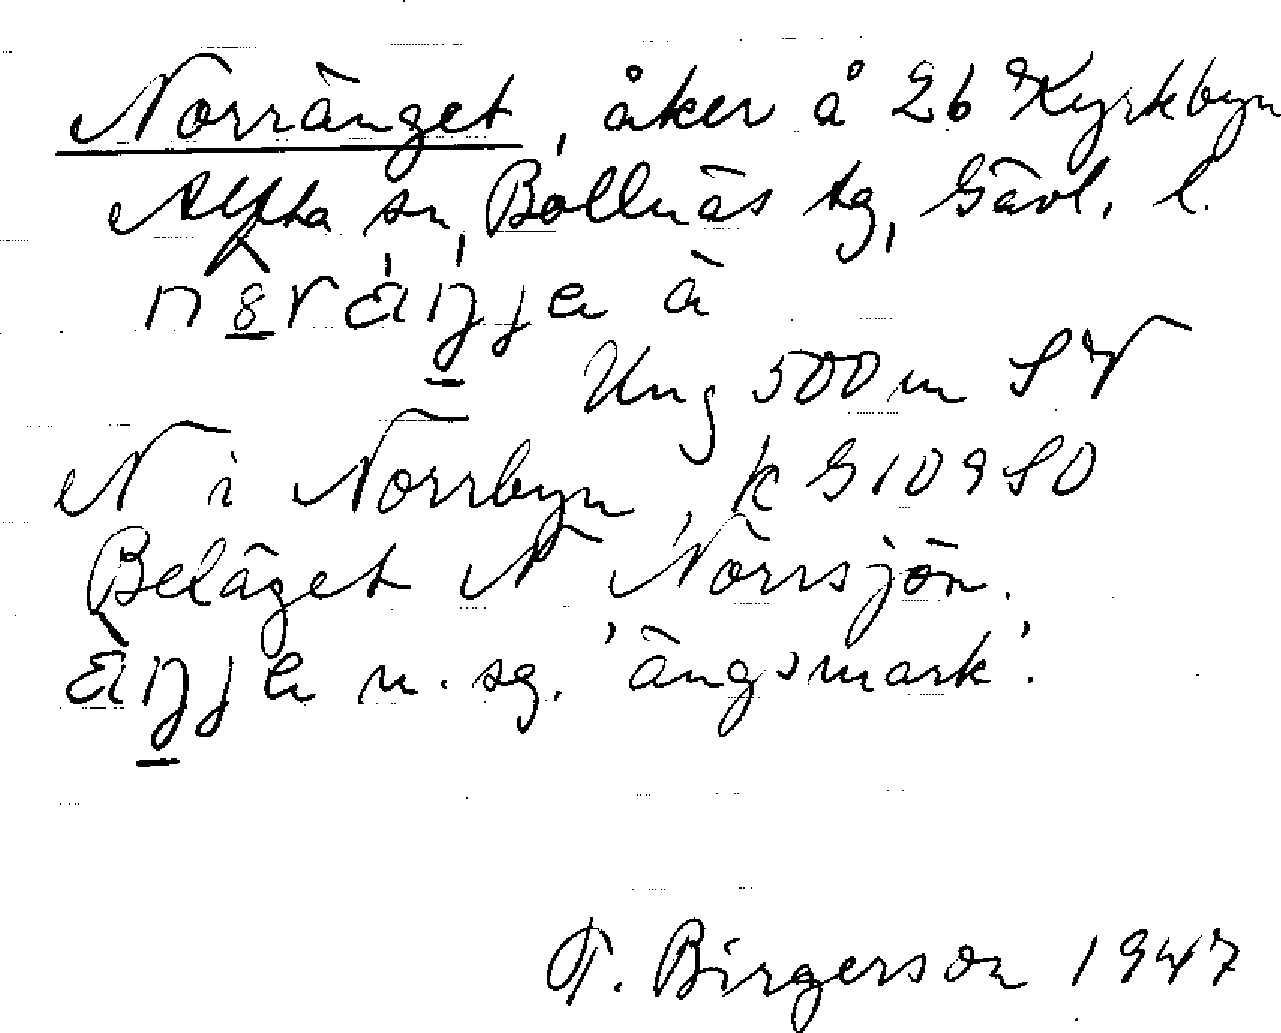 Norränget, åker å 26 Kyrkbyn
Alfta sn, Bollnäs tg, Gävl. l.
Ung 500 m SV
N i Norrbyn, k G109SO
Beläget N Norrsjön.
n. sg. 'ängsmark'.
T. Birgerson 1947